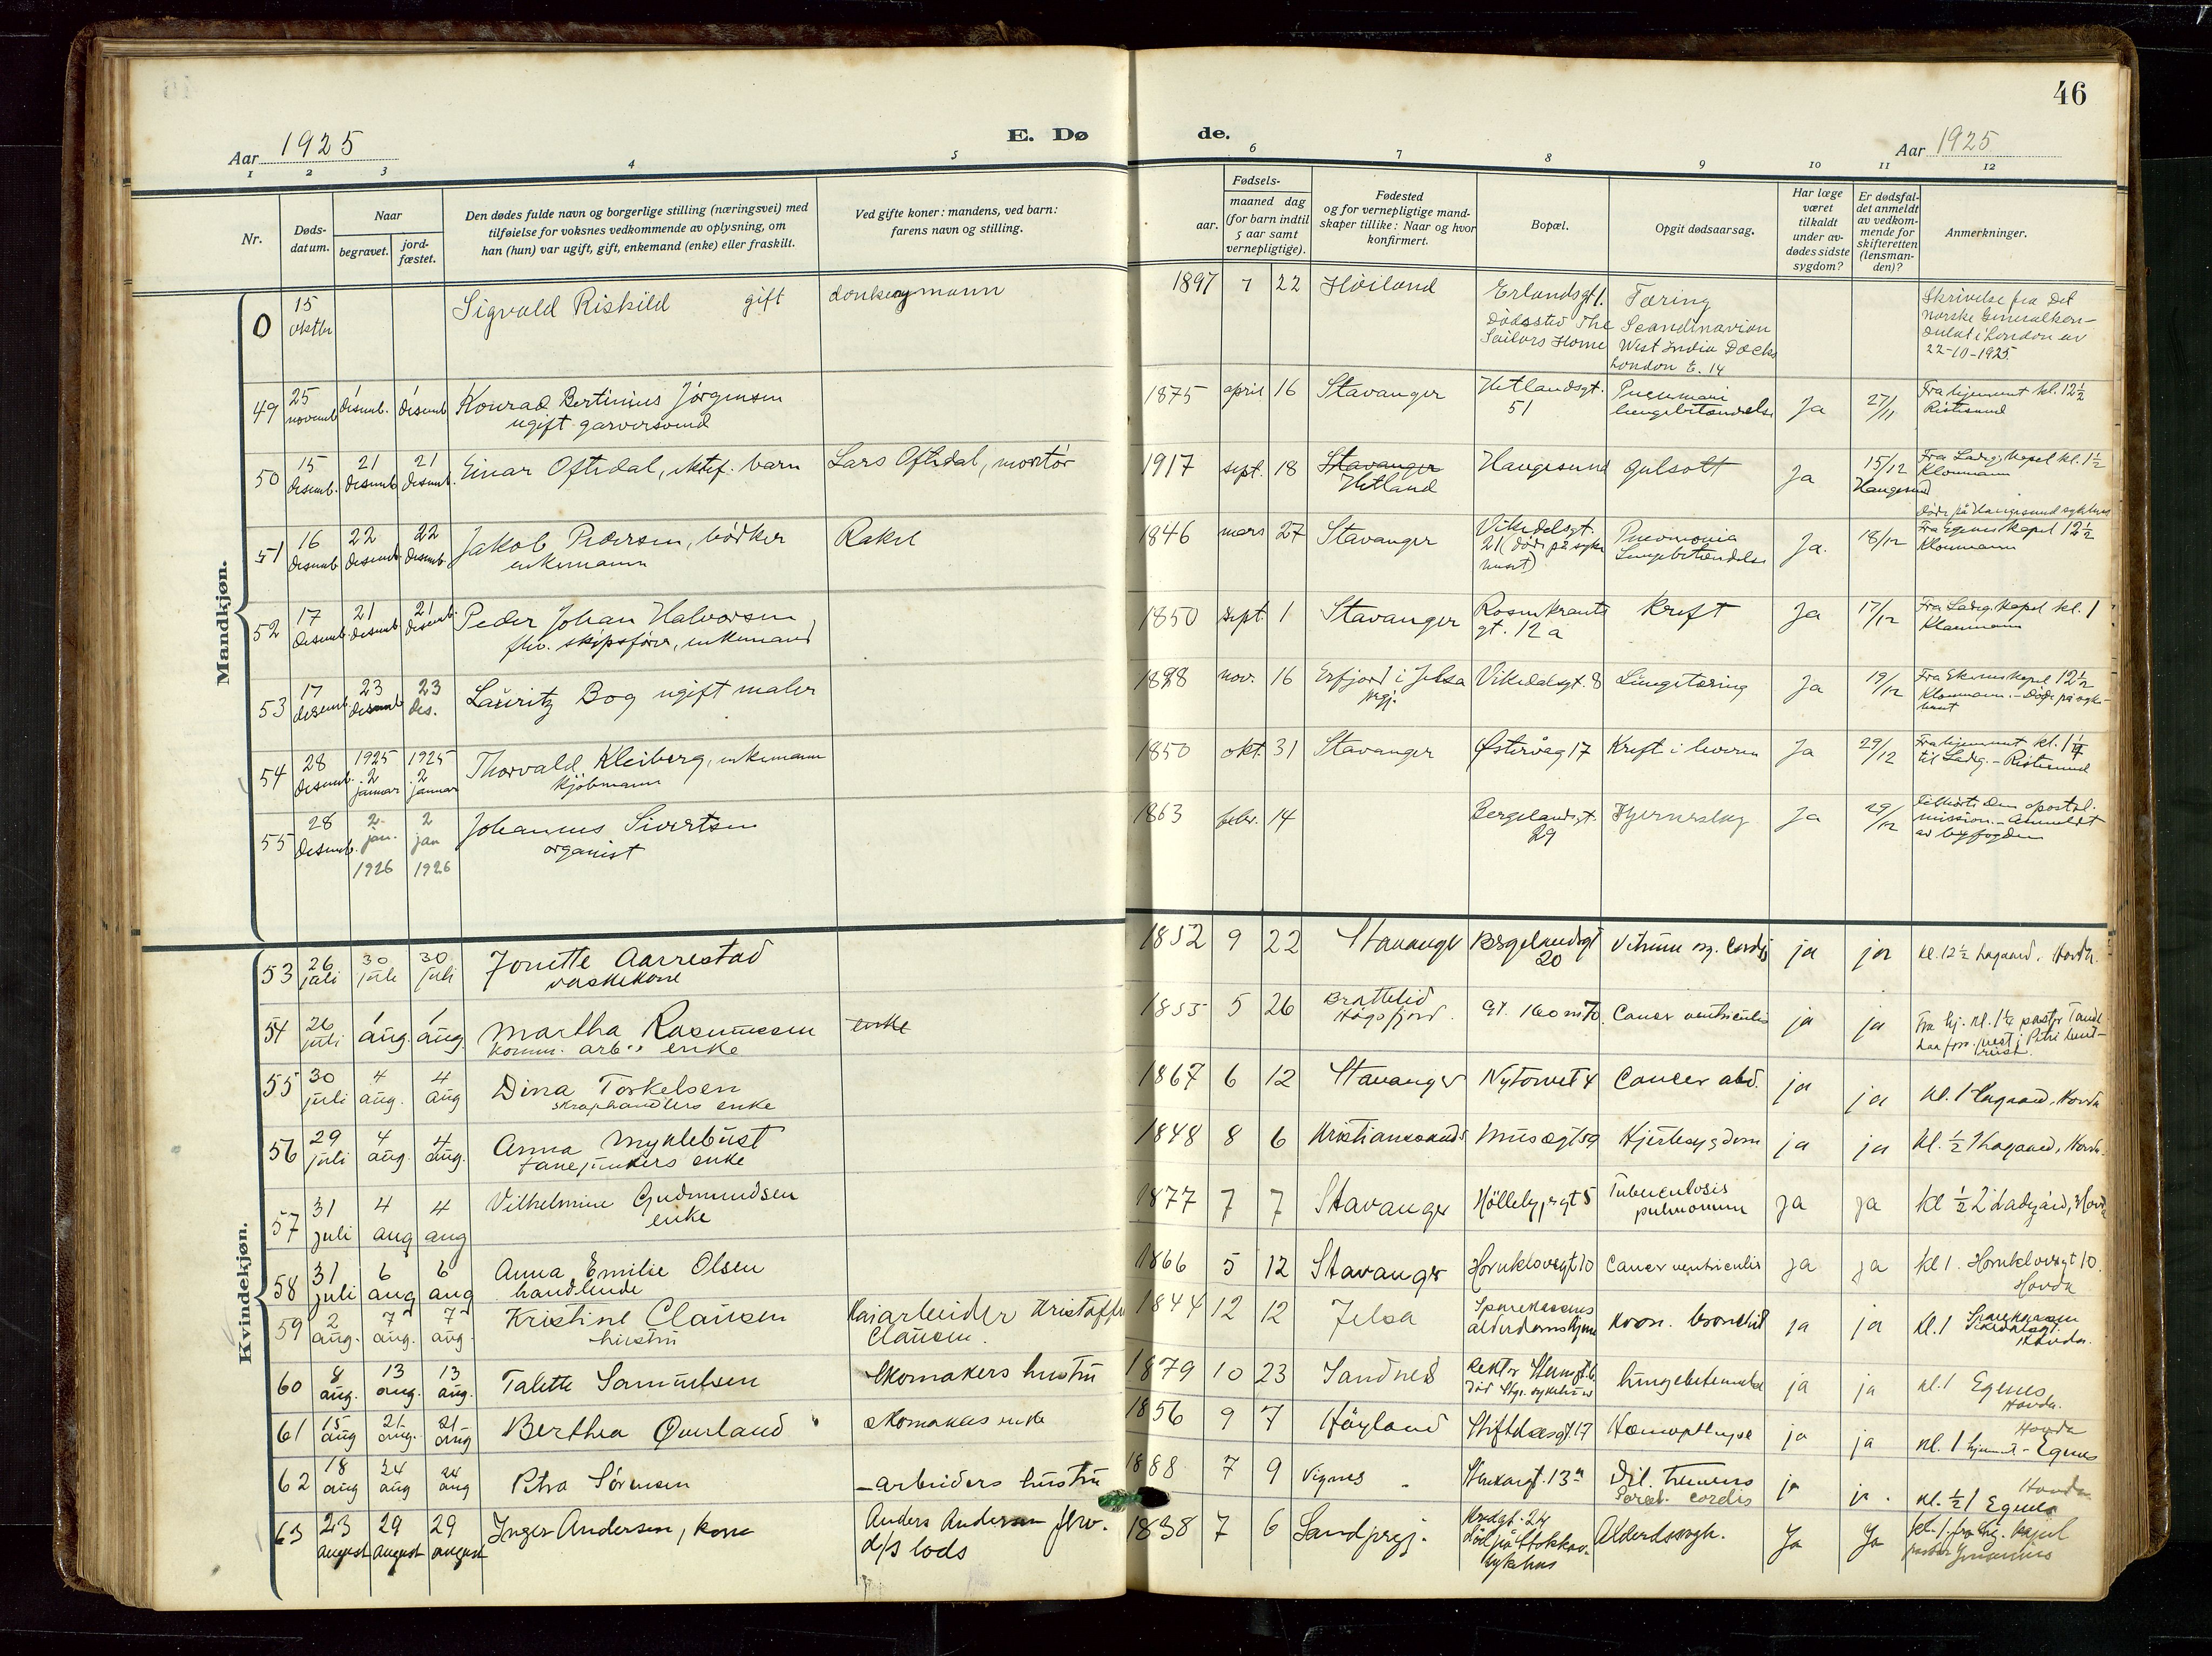 46
Aar 1925
E. Dø
de.
Aar 1925
1 2 3 4 5 6 7 8 9 10 11 12
Nr.
Døds-
datum.
Naar
begravet.
jord-
fæstet.
Den dødes fulde navn og borgerlige stilling (næringsvei) med
tilføielse for voksnes vedkommende av oplysning, om
han (hun) var ugift, gift, enkemand (enke) eller fraskilt.
Ved gifte koner: mandens, ved barn:
farens navn og stilling.
Fødsels-
aar.
maaned dag
(for barn indtil
5 aar samt
vernepligtige).
Fødested
og for vernepligtige mand-
skaper tillike: Naar og hvor
konfirmert.
Bopæl.
Opgit dødsaarsag.
Har læge
været
tilkaldt
under av-
dødes sidste
sygdom?
Er dødsfal-
det anmeldt
av vedkom-
mende for
skifteretten
(lensman-
den)?
Anmerkninger.
Mandkjøn.
0 15 oktbr Sigvald Riskild gift donkeymann 1897 7 22 Høiland Erlandsgt 1. Tæring
Dødssted The Scandinavian
Sailors Home West India Docks
London E. 14
Skrivelse fra Det
norske Generalkon-
sulat i London av
22-10-1925.
49 25 novemb. desemb. desemb. Konrad Bertinius Jörgensen
ugift garversvend
1875 april 16 Stavanger Hetlandsgt. 51 lungebetændelse Ja 27/11 Fra hjemmet kl. 12½
50 15 desemb. 21 desemb. 21 desemb. Einar Oftedal, ektef. barn Lars Oftedal, montör
1917 sept. 18 Stavanger Hetland Haugesund gulsott Ja 15/12 Haugesund Fra Ladeg. kapel kl. 1½
Kloumann
Döde på Haugesund sykehus
51 16 desemb. 22 desemb. 22 desemb. Jakob Pedersen, bödker Rakel
enkemann
1846 mars 27 Stavanger Vikedalsgt. 21 (död på sykehuset) Pneumonia Lungebetændelse Ja. 18/12 Fra Egenes kapel 12½
Kloumann
52 17 desemb. 21 desemb. 21 desemb. Peder Johan Halvorsen
fhv. skipsförer, enkemand
1850 sept. 1 Stavanger Rosenkrantz gt. 12 a Kreft Ja 17/12 Fra Ladeg. kapel kl. 1
Kloumann
53 17 desemb. 23 desemb. 23 des. Lauritz Bog ugift maler
1898 nov. 16 Erfjord i Jelsa prgj. Vikedalsgt. 8 Lungetæring Ja 19/12 Fra Ekenes kapel 12½
Kloumann. - Döde på syke-
huset
54 28 desemb. 1925 2 januar 1925 2 januar Thorvald Kleiberg, enkemann
kjöbmann
1850 okt. 31 Stavanger Østervåg 17 Kreft i leveren Ja 29/12 Fra hjemmet kl. 1¼
til Ladeg. -
55 28 desemb. 2 jan. 1926 2 jan 1926 Johannes Sivertsen
organist
1863 febr. 14 Bergelandsgt. 29 Hjerneslag Ja 29/12 tilhörte Den apostol.
mission. - Anmeldt
av byfogden
Kvindekjøn.
53 26 juli 30 juli 30 juli Jonette Aarrestad
vaskekone
1852 9 22 Stavanger Bergelandsgt 20 Vitium org. cordis ja ja kl. 12½ Lagaard, Hovda.
54 26 juli 1 aug. 1 aug. Martha Rasmussen enke
komm. arb.s enke
1855 5 26 Brattelid Högsfjord. Cancer ventriculi ja ja Fra hj. kl. 1¼ pastor
55 30 juli 4 aug. 4 aug Dina Torkelsen
skraphandlers enke
1867 6 12 Stavanger Nytorvet 4 Cancer abd. ja ja kl. 1 Lagaard, Hovda
56 29 juli 4 aug. 4 aug. Anna Myklebust
fanejunkers enke
1848 8 6 Kristianssand Musegt 59 Hjertesygdom ja ja kl. ½ 1 Lagaard, Hovda.
57 31 juli 4 aug 4 aug Vilhelmine Gudmundsen
enke
1877 7 7 Stavanger Tuberculosis pulmonum ja ja kl ½ 2 Ladegård, Hovda
58 31 juli 6 aug 6 aug Anna Emilie Olsen
handlende
1866 5 12 Stavanger Hornklovsgt 10 Cancer ventriculi ja ja kl 1. Hornklovsgt 10.
Hovda
59 2 aug. 7 aug. 7 aug. Kristine Clausen
hustru
Kaiarbeider Kristoffer
Clausen.
1844 12 12 Jelsa Sparekassens alderdomshjem kron. bronchit ja ja kl. 1 Sparekassen
Hovda.
60 8 aug. 13 aug. 13 aug. Talette Samuelsen Skomakers hustru
1879 10 23 Sandnes lungebetændelse ja ja kl. 1 Egenes
Hovda.
61 15 aug 21 aug. 21 aug Berthea Øverland skomakers enke
1856 9 7 Höyland Haemoptyse ja ja kl. 1 hjemmet - Egenes
Hovda
62 18 aug 24 aug 24 aug Petra Sörensen - arbeiders hustru
1888 7 9 Vignes Del. tremens
Paral. cordis ja ja. kl. ½ 1 Egenes
Hovda
63 23 august 29 august 29 august Inger Andersen, kone Anders Andersen fhv.
d/s lods
1838 7 6 Sand prgj. Alderdomssvagh. Ja Ja kl. 1 fra Lg. kapel
pastor